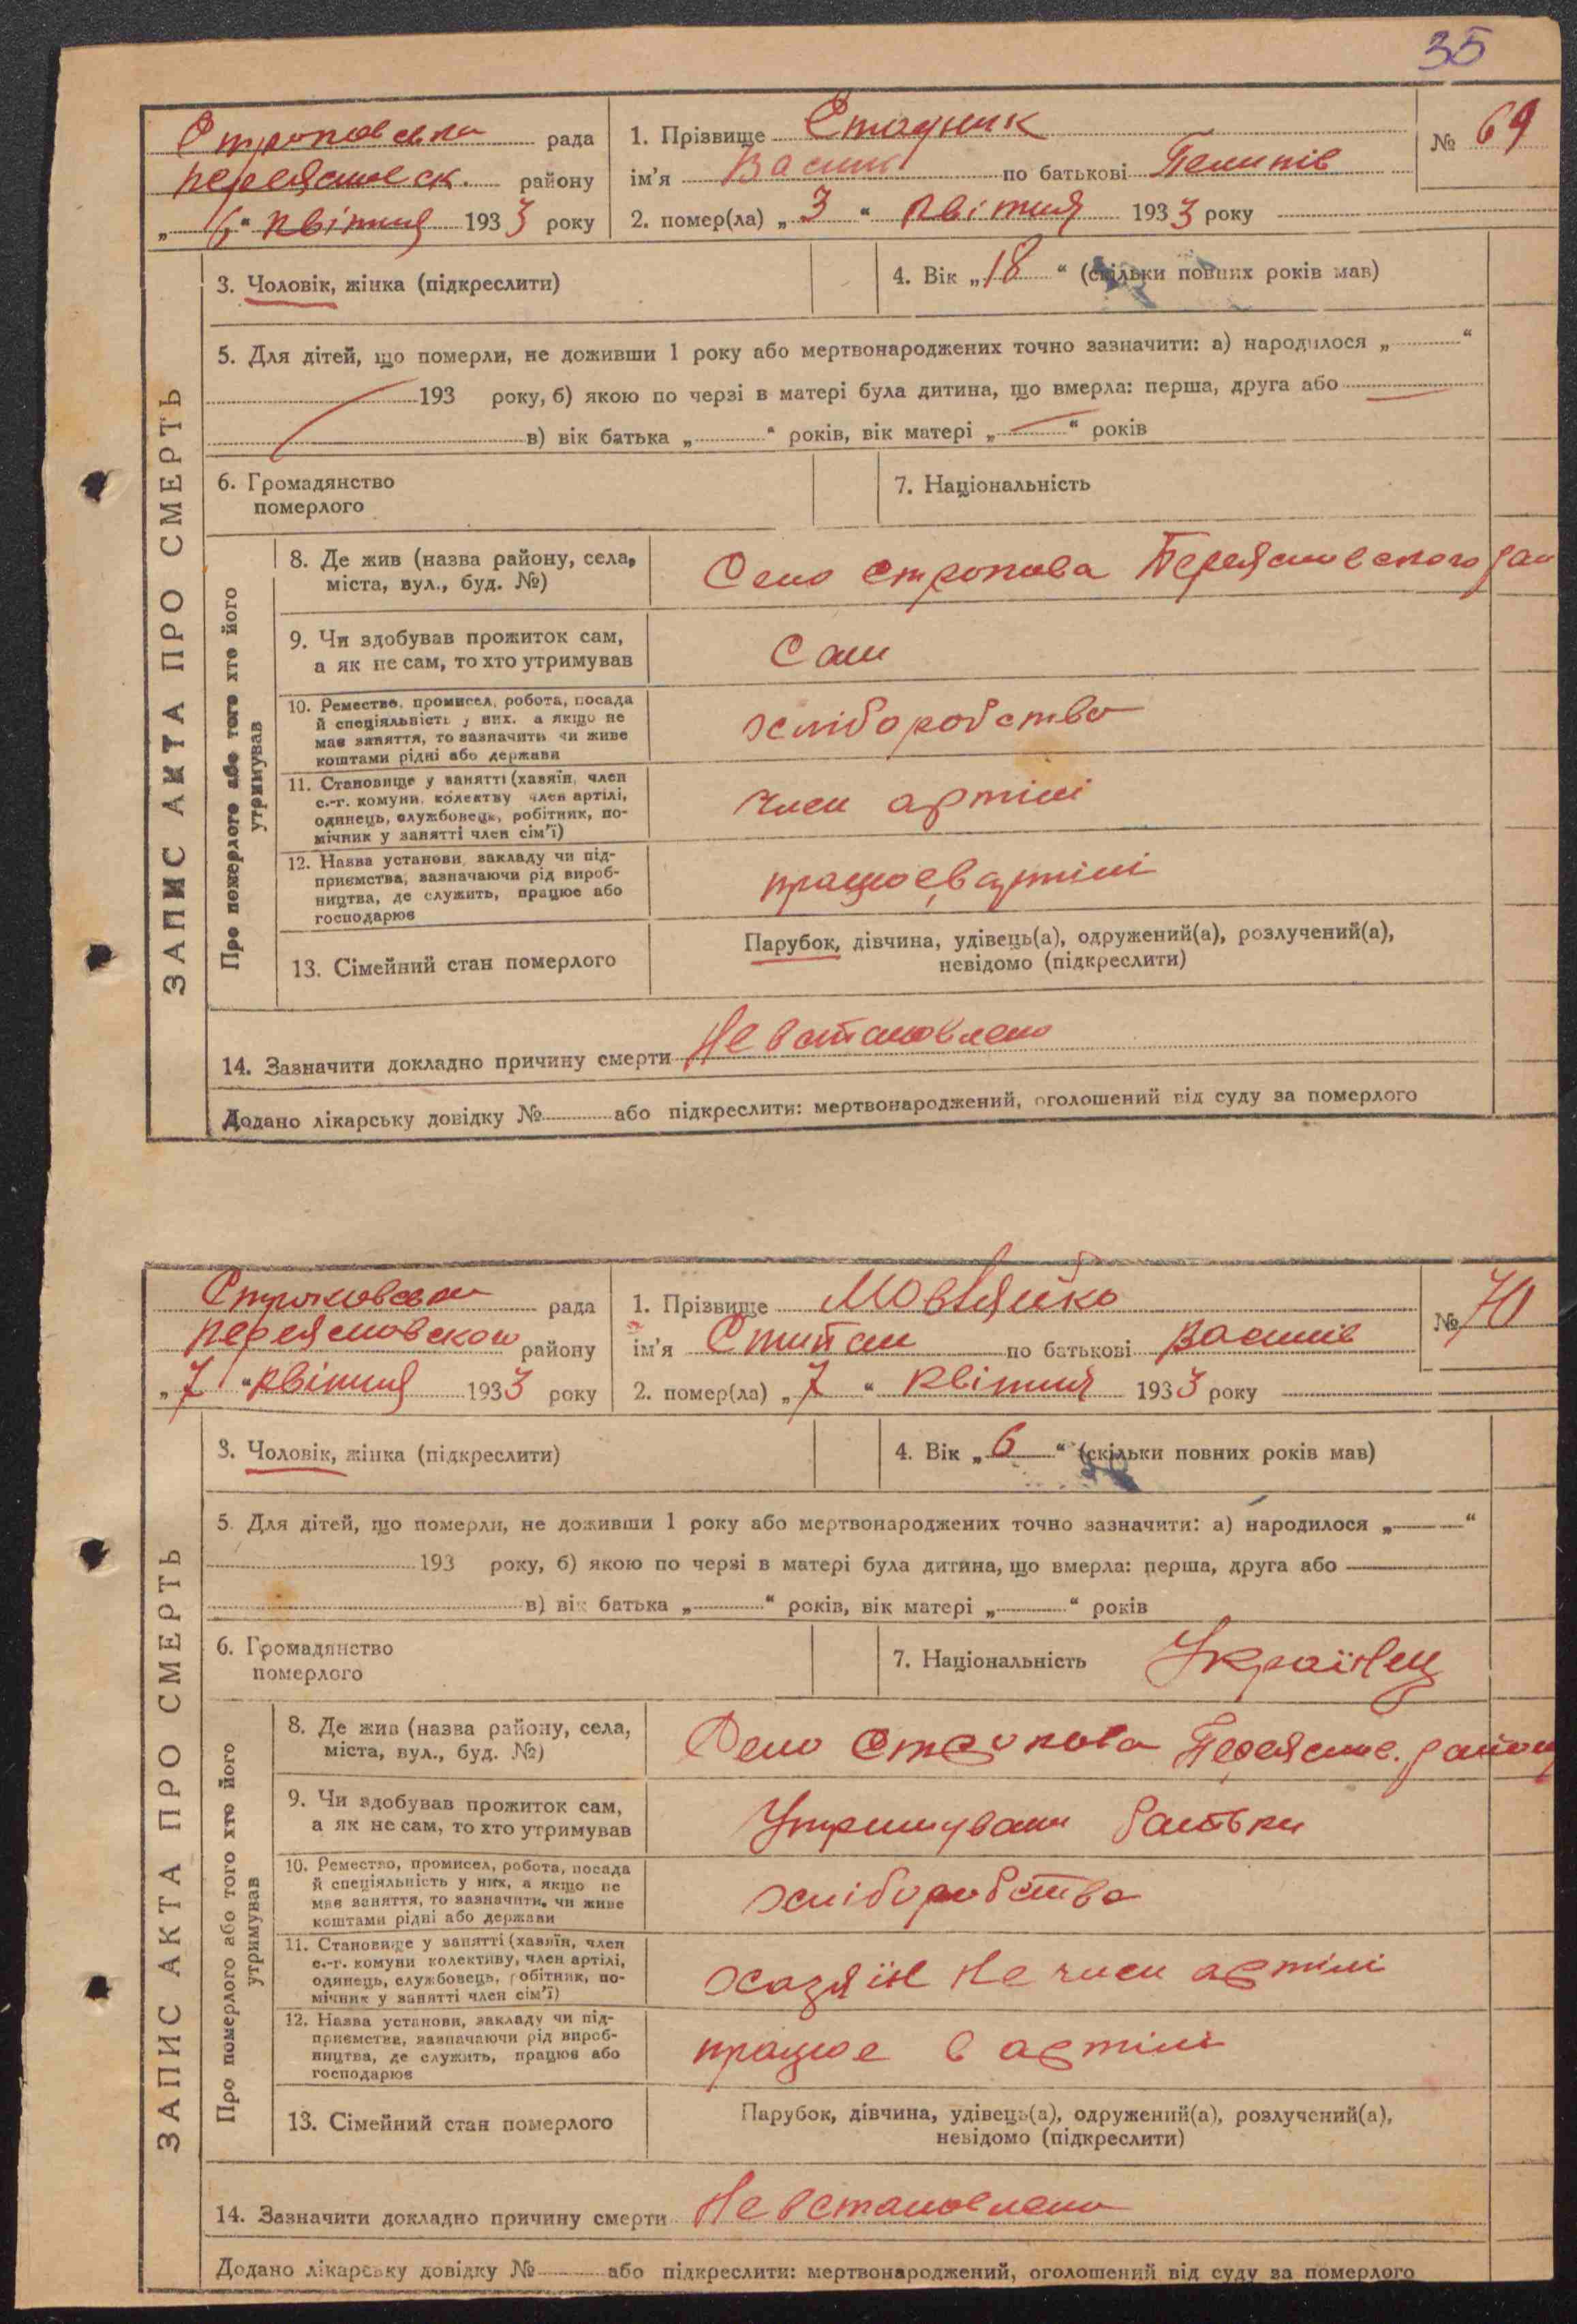 35
Строковська рада
переяславск. району
„6“ квітня 1933 року
1. Прізвище Стадник
ім’я Василь по батькові Пилипів
2. помер(ла) „3“ квітня 1933 року
№ 69
ЗАПИС АКТА ПРО СМЕРТЬ
3. Чоловік, жінка (підкреслити)
4. Вік „18“ (скільки повних років мав)
5. Для дітей, що померли, не доживши 1 року або мертвонароджених точно зазначити: а) народилося „ “
193 року, б) якою по черзі в матері була дитина, що вмерла: перша, друга або
в) вік батька „ “ років, вік матері „ “ років
6. Громадянство
померлого
7. Національність
Про померлого або того хто його
утримував
8. Де жив (назва району, села,
міста, вул., буд. №)
Село строкова Переяславского рай
9. Чи здобував прожиток сам,
а як не сам, то хто утримував
Сам
10. Ремество, промисел, робота, посада
й спеціяльність у них, а якщо не
має заняття, то зазначити чи живе
коштами рідні або держави
хліборобство
11. Становище у занятті (хазяїн, член
с.-г. комуни, колективу член артілі,
одинець, службовець, робітник, по-
мічник у занятті член сім’ї)
член артілі
12. Назва установи, закладу чи під-
приємства, зазначаючи рід вироб-
ництва, де служить, працює або
господарює
працює в артілі
13. Сімейний стан померлого
Парубок, дівчина, удівець(а), одружений(а), розлучений(а),
невідомо (підкреслити)
14. Зазначити докладно причину смерти Не встановлено
Додано лікарську довідку № або підкреслити: мертвонароджений, оголошений від суду за померлого
Строковська рада
переяславского району
„7“ квітня 1933 року
1. Прізвище
ім’я Степан по батькові Василів
2. помер(ла) „7“ квітня 1933 року
№ 70
ЗАПИС АКТА ПРО СМЕРТЬ
3. Чоловік, жінка (підкреслити)
4. Вік „6“ (скільки повних років мав)
5. Для дітей, що померли, не доживши 1 року або мертвонароджених точно зазначити: а) народилося „ “
193 року, б) якою по черзі в матері була дитина, що вмерла: перша, друга або
в) вік батька „ “ років, вік матері „ “ років
6. Громадянство
померлого
7. Національність Українец
Про померлого або того хто його
утримував
8. Де жив (назва району, села,
міста, вул., буд. №)
Село Строкова Переяслав. району
9. Чи здобував прожиток сам,
а як не сам, то хто утримував
Утримували батьки
10. Ремество, промисел, робота, посада
й спеціяльність у них, а якщо не
має заняття, то зазначити, чи живе
коштами рідні або держави
хліборобство
11. Становище у занятті (хазяїн, член
с.-г. комуни колективу, член артілі,
одинець, службовець, робітник, по-
мічник у занятті член сім’ї)
хазяїн не член артілі
12. Назва установи, закладу чи під-
приємства, зазначаючи рід вироб-
ництва, де служить, працює або
господарює
працює в артілі
13. Сімейний стан померлого
Парубок, дівчина, удівець(а), одружений(а), розлучений(а),
невідомо (підкреслити)
14. Зазначити докладно причину смерти Не встановлено
Додано лікарську довідку № або підкреслити: мертвонароджений, оголошений від суду за померлого